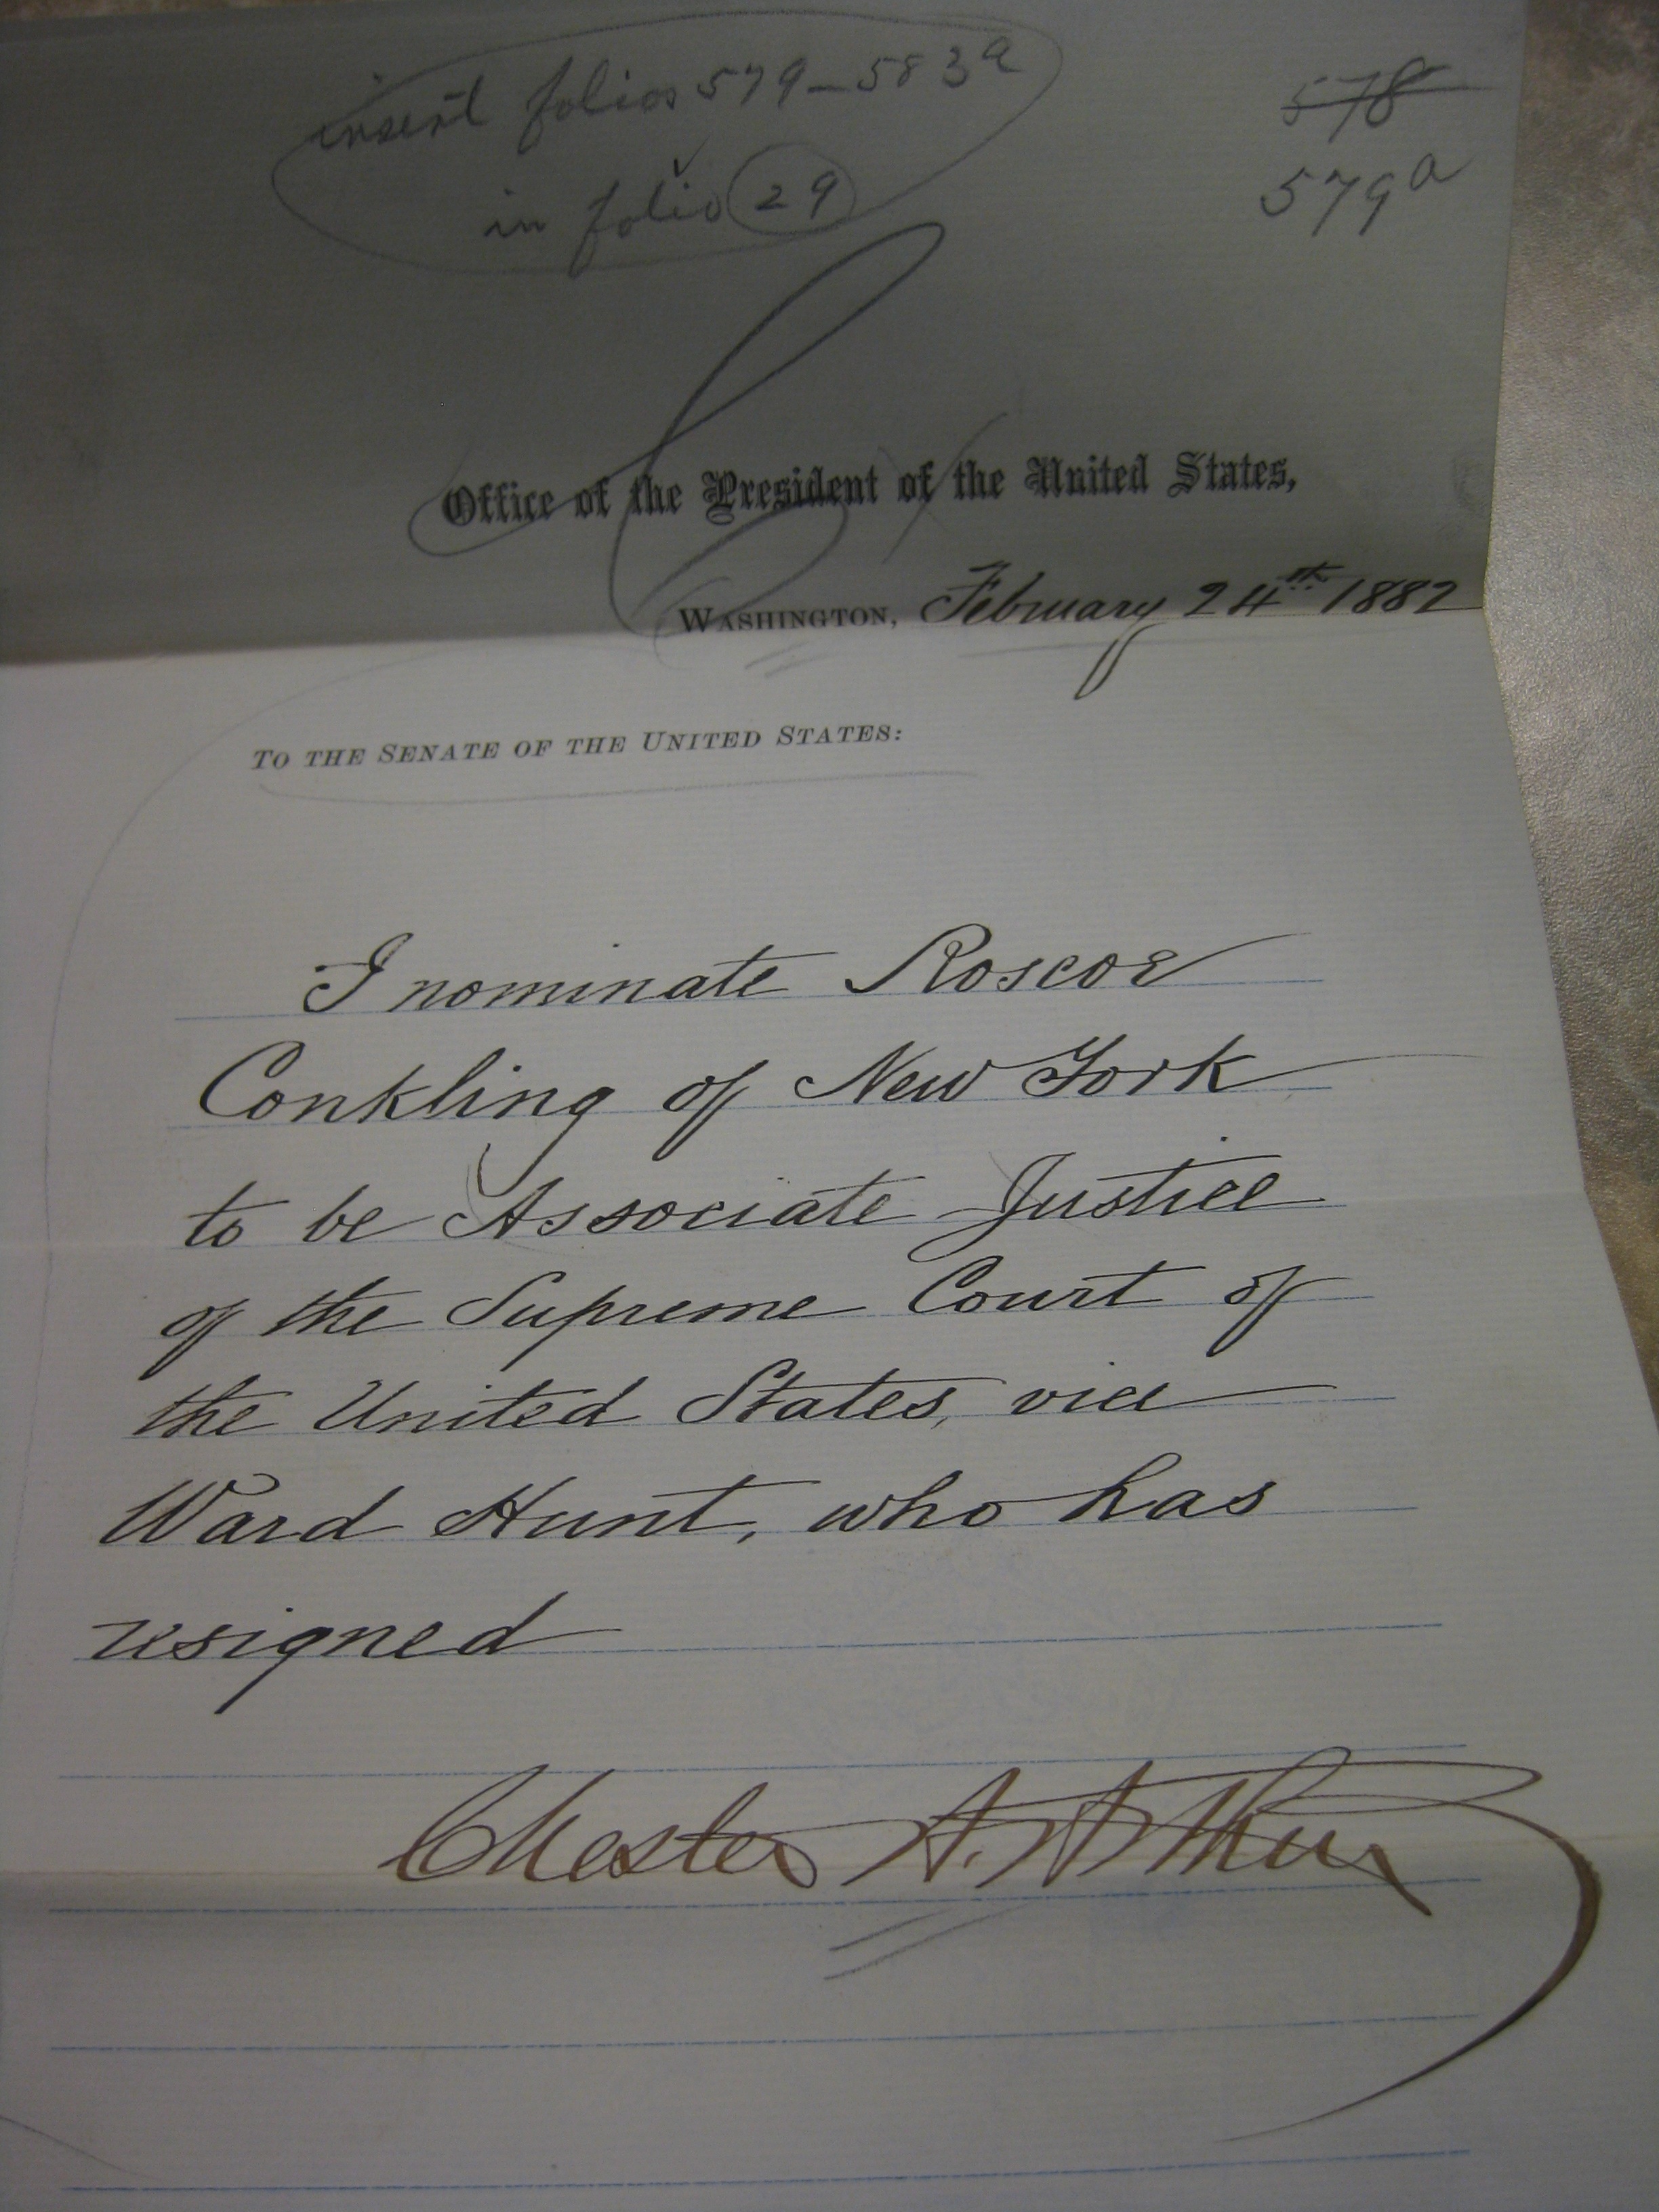 insert folios 579-583a
in folio 29
578
579a
Office of the President of the United States,
WASHINGTON, February 24th 1882
TO THE SENATE OF THE UNITED STATES:
I nominate Roscoe
Conkling of New York
to be Associate Justice
of the Supreme Court of
the United States, vice
Ward Hunt, who has
resigned
Chester A. Arthur